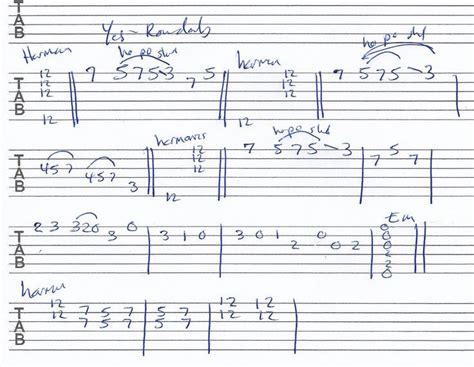 TAB
Yes - Roundabout
Harmon ho po slid harmon ho po slid
12 7 5 7 5 3 7 5 12 7 5 7 5 - 3
12 12
12 12
12 12
TAB
harmonics ho po slid
4 5 7 4 5 7 3 12 7 5 7 5 - 3 7 5 7
12
12
12
TAB
Em
2 3 3 2 0 3 0 3 1 0 3 0 1 2 0 0 2 0
0
0
2
2
0
TAB
harmon
12 7 5 7 5 7 12 12
12 7 5 7 5 7 12 12
TAB